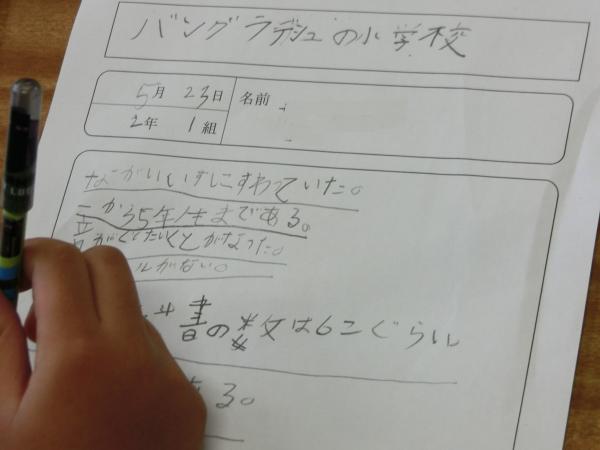 バングラデシュの小学校
5月 23日 名前
2年 1組
ながいいすにすわっていた。
から5年生まである。
がなった。
ルがない。
書の数は6こぐらい
る。